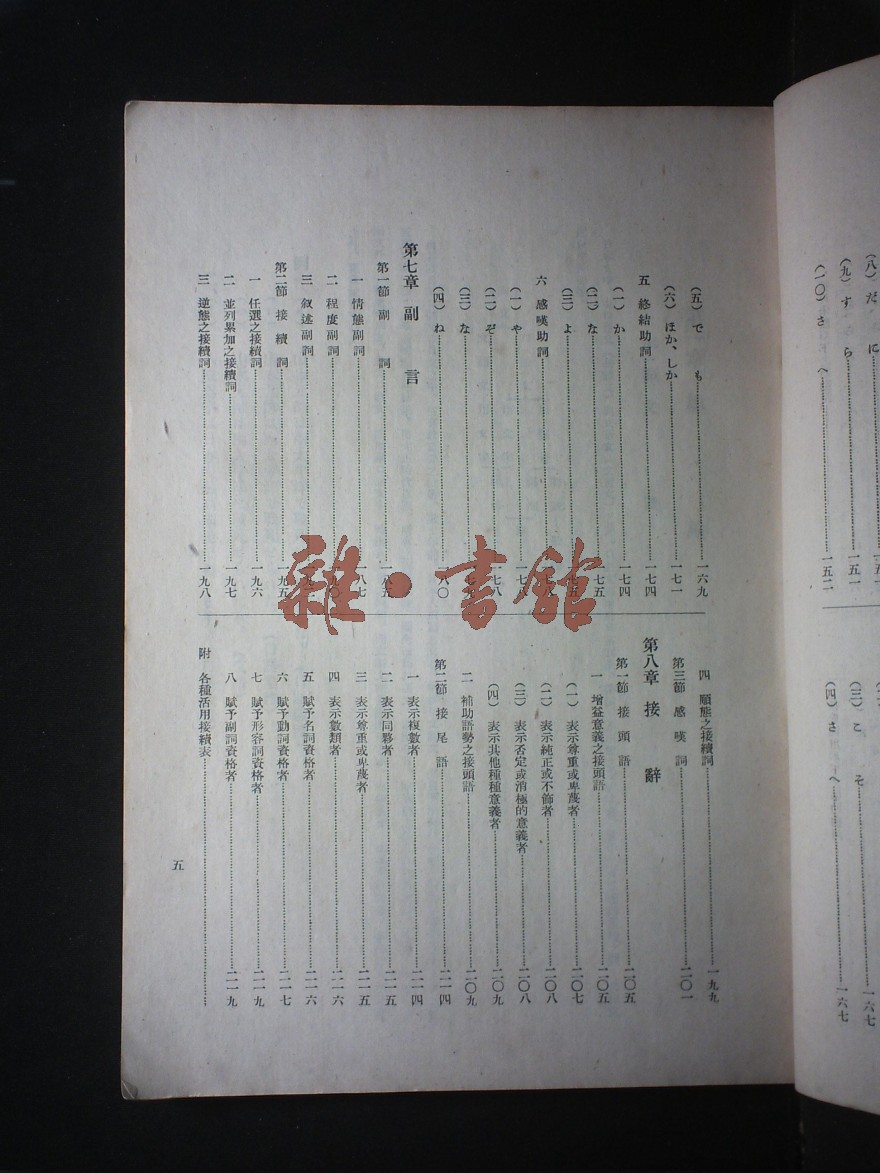 (八)だに……一五一
(九)すら……一五一
(一〇)さへ……一五二
(三)こそ……一六七
(四)さへ……一六七
(五)でも……一六九
(六)ほか、しか……一七一
五 終結助詞……一七四
(一)か……一七四
(二)な……一七五
(三)よ……
六 感嘆助詞……
(一)や……
(二)ぞ……一七八
(三)な……
(四)ね……一八〇
第七章 副言
第一節 副詞……一八五
一 情態副詞……一八七
二 程度副詞……
三 叙述副詞……
第二節 接續詞……一九五
一 任選之接續詞……一九六
二 並列累加之接續詞……一九七
三 逆態之接續詞……一九八
四 順態之接續詞……一九九
第三節 感嘆詞……二〇一
第八章 接辭
第一節 接頭語……二〇五
一 增益意義之接頭語……二〇五
(一)表示尊重或卑蔑者……二〇七
(二)表示純正或不飾者……二〇八
(三)表示否定或消極的意義者……二〇八
(四)表示其他種種意義者……二〇九
二 補助語勢之接頭語……二〇九
第二節 接尾語……二一四
一 表示複數者……二一四
二 表示同夥者……二一五
三 表示尊重或卑蔑者……二一五
四 表示數類者……二一六
五 賦予名詞資格者……二一六
六 賦予動詞資格者……二一七
七 賦予形容詞資格者……二一九
八 賦予副詞資格者……二一九
附 各種活用接續表……
五
雜·書館